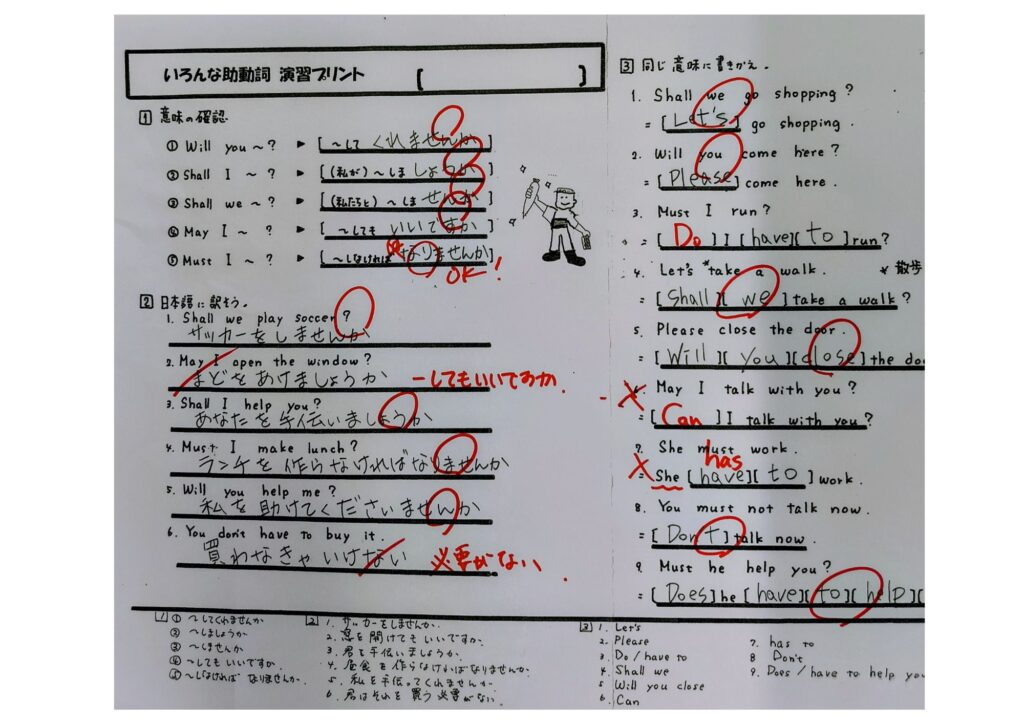 いろんな助動詞 演習プリント [ ]
1 意味の確認
① Will you ~ ? ▶ [ ~して くれませんか ]
② Shall I ~ ? ▶ [ (私が) ~しま しょうか ]
③ Shall we ~ ? ▶ [ (私たちと) ~しま せんか ]
④ May I ~ ? ▶ [ ~しても いいですか ]
⑤ Must I ~ ? ▶ [ ~しなければ なりませんか ]
OK!
2 日本語に訳そう。
1. Shall we play soccer?
サッカーをしませんか
2. May I open the window?
まどをあけましょうか ーしてもいいですか.
3. Shall I help you?
あなたを手伝いましょうか
4. Must I make lunch?
ランチを作らなければなりませんか
5. Will you help me?
私を助けてくださいませんか
6. You don't have to buy it.
買わなきゃいけない 必要がない
3 同じ意味に書きかえ。
1. Shall we go shopping?
= [ Let's ] go shopping.
2. Will you come here?
= [ Please ] come here.
3. Must I run?
= [ Do ] I [ have ][ to ] run?
4. Let's *take a walk. * 散歩
= [ Shall ][ we ] take a walk?
5. Please close the door.
= [ Will ][ you ][ close ] the doo
6. May I talk with you?
= [ Can ] I talk with you?
7. She must work.
has
= She [ have ][ to ] work.
8. You must not talk now.
= [ Don't ] talk now.
9. Must he help you?
= [ Does ] he [ have ][ to ][ help ][
1 ① ~してくれませんか
② ~しましょうか
③ ~しませんか
④ ~してもいいですか
⑤ ~しなければ なりませんか.
2 1. サッカーをしませんか.
2. 窓を開けてもいいですか.
3. 君を手伝いましょうか.
4. 昼食を作らなければなりませんか.
5. 私を手伝ってくれませんか
6. 君はそれを買う必要がない.
3 1. Let's
2. Please
3. Do / have to
4. Shall we
5. Will you close
6. Can
7. has to
8 Don't
9. Does / have to help you